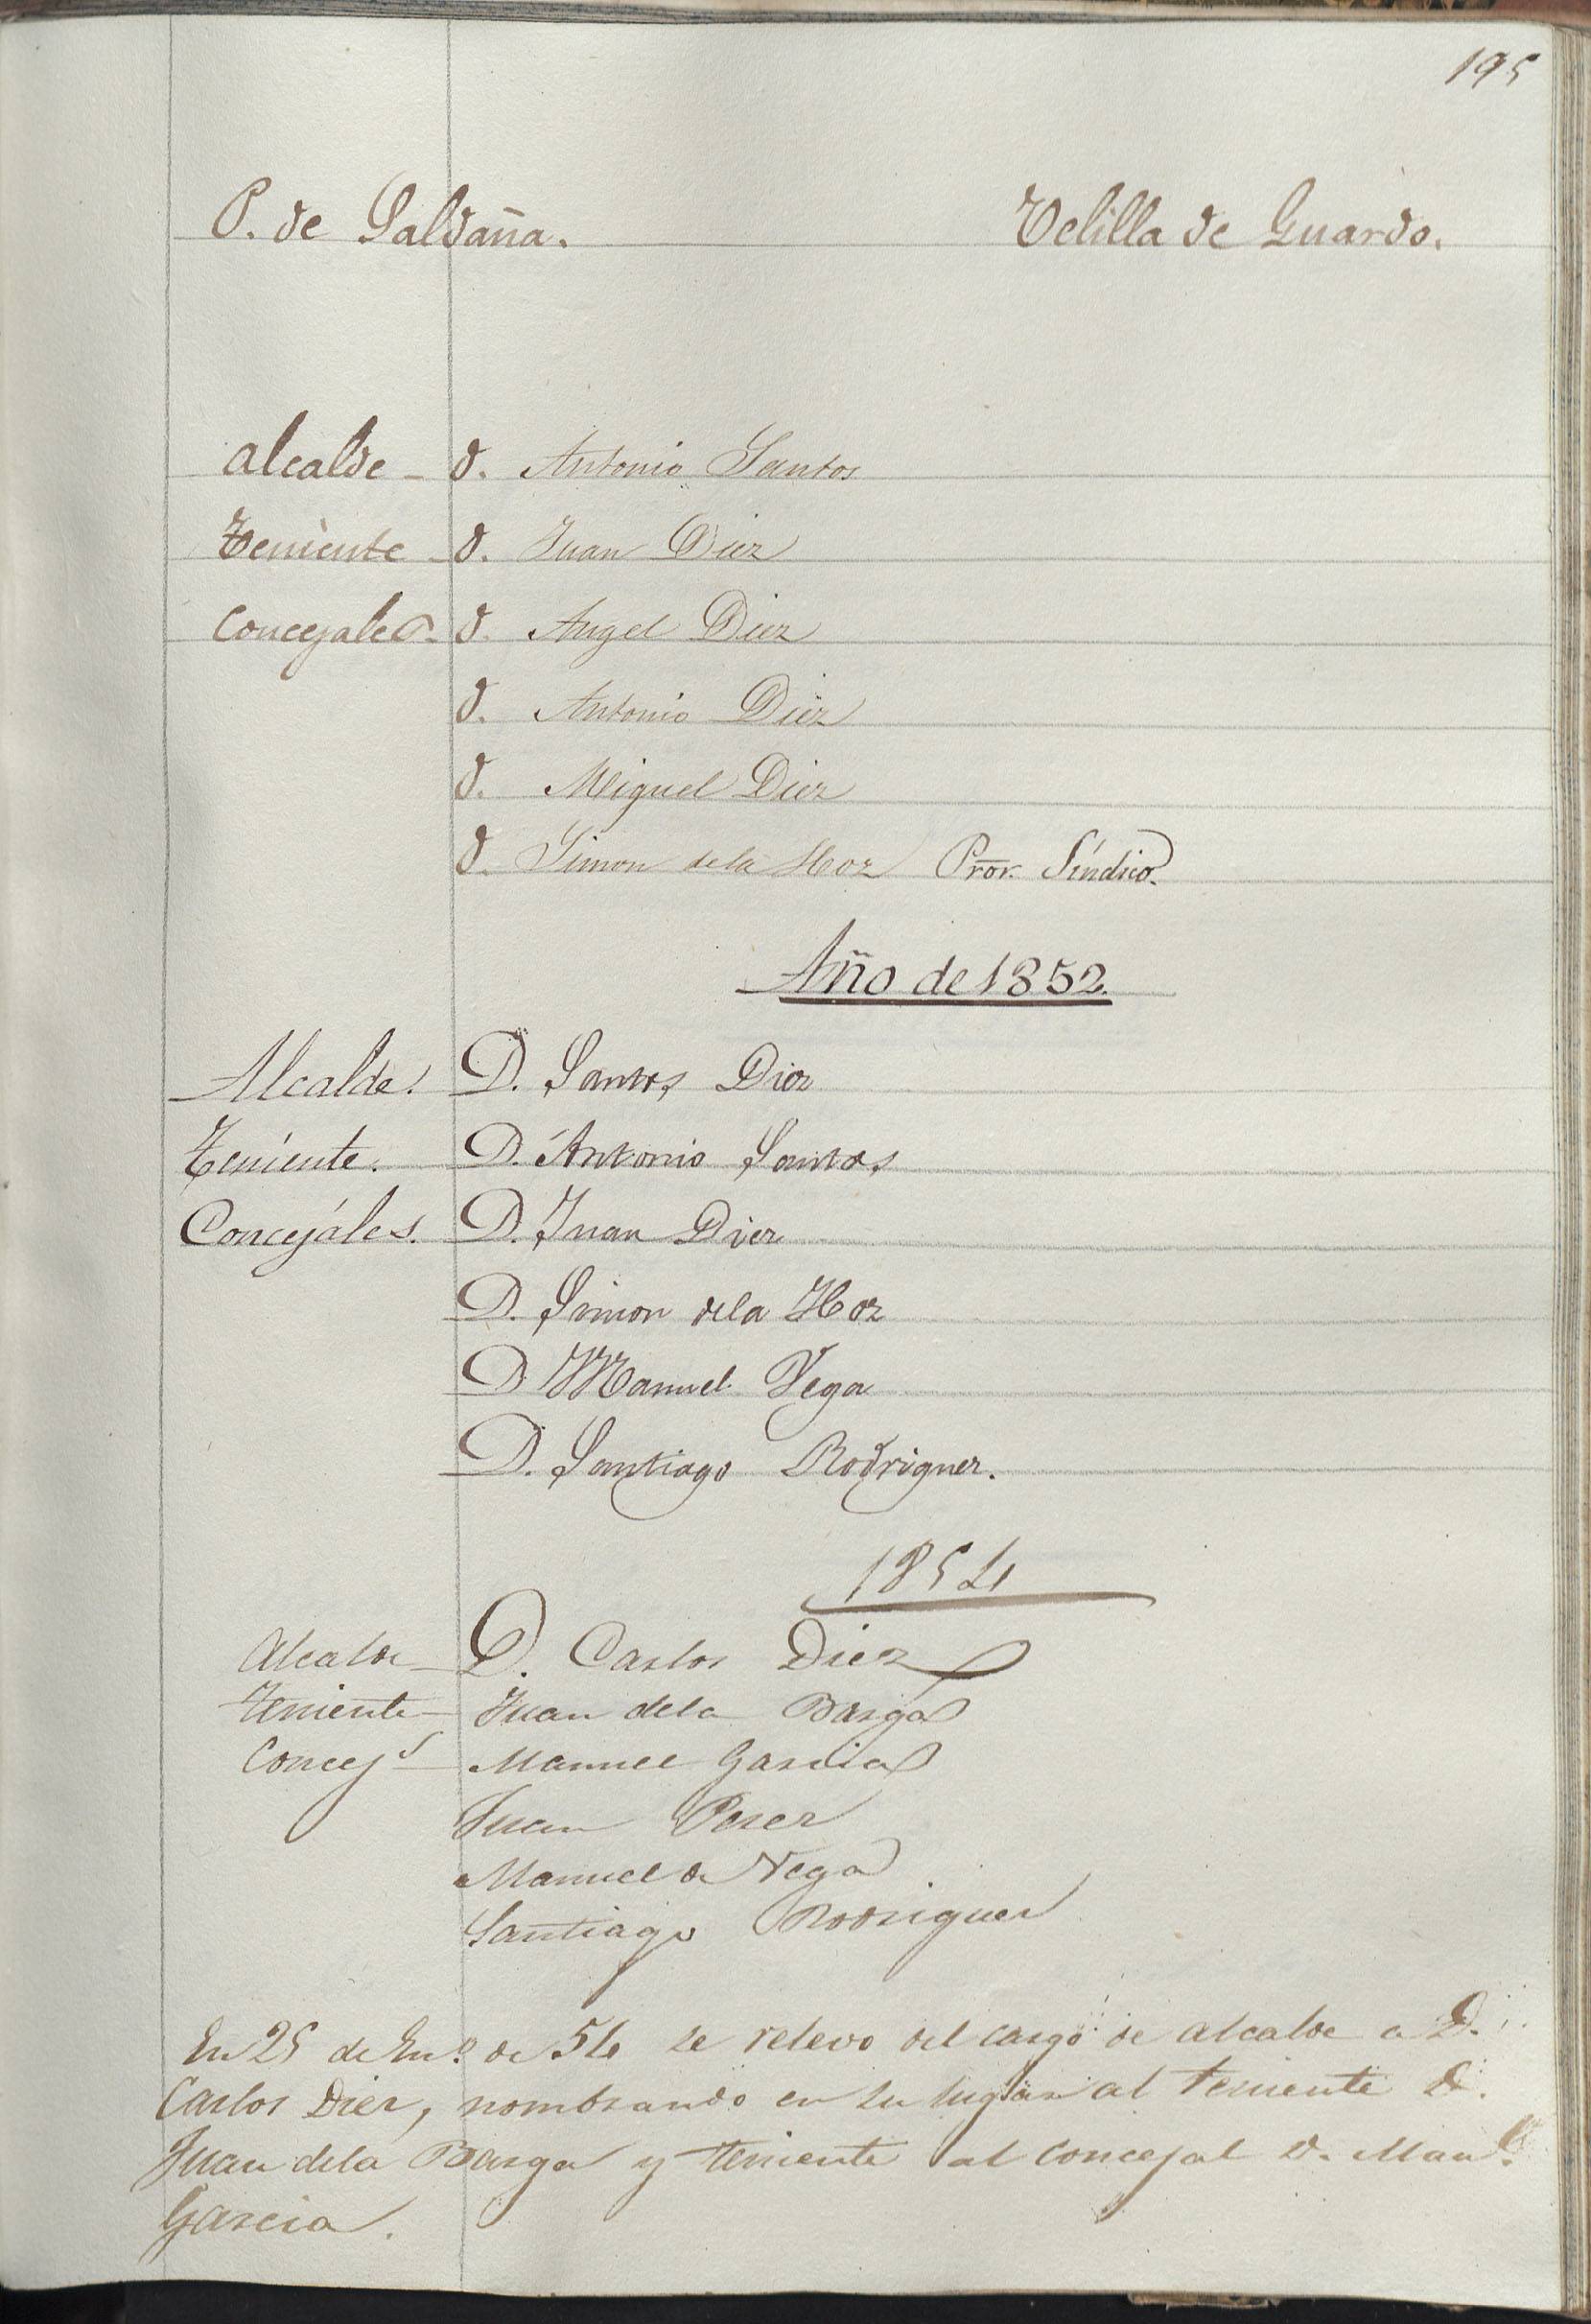 195
P. de Saldaña. Velilla de Guardo.
Alcalde - D. Antonio Santos
Teniente - D. Juan Diez
Concejales - D. Angel Diez
D. Antonio Diez
D. Miguel Diez
D. Simon dela Hoz Pror. Síndico.
Año de 1852.
Alcalde. D. Santos Diez
Teniente. D. Antonio Santos
Concejáles. D. Juan Diez
D. Simon dela Hoz
D Manuel Vega
D. Santiago Rodriguez.
1854
Alcalde - D. Carlos Diez
Teniente - Juan dela Barga
Concejs - Manuel Garcia
Juan Perez
Manuel de Vega
Santiago Rodriguez
En 25 de Eno. de 54 se relevo del cargo de alcalde a D.
Carlos Diez, nombrando en su lugar al teniente D.
Juan dela Barga y teniente al concejal D. Manl.
Garcia.